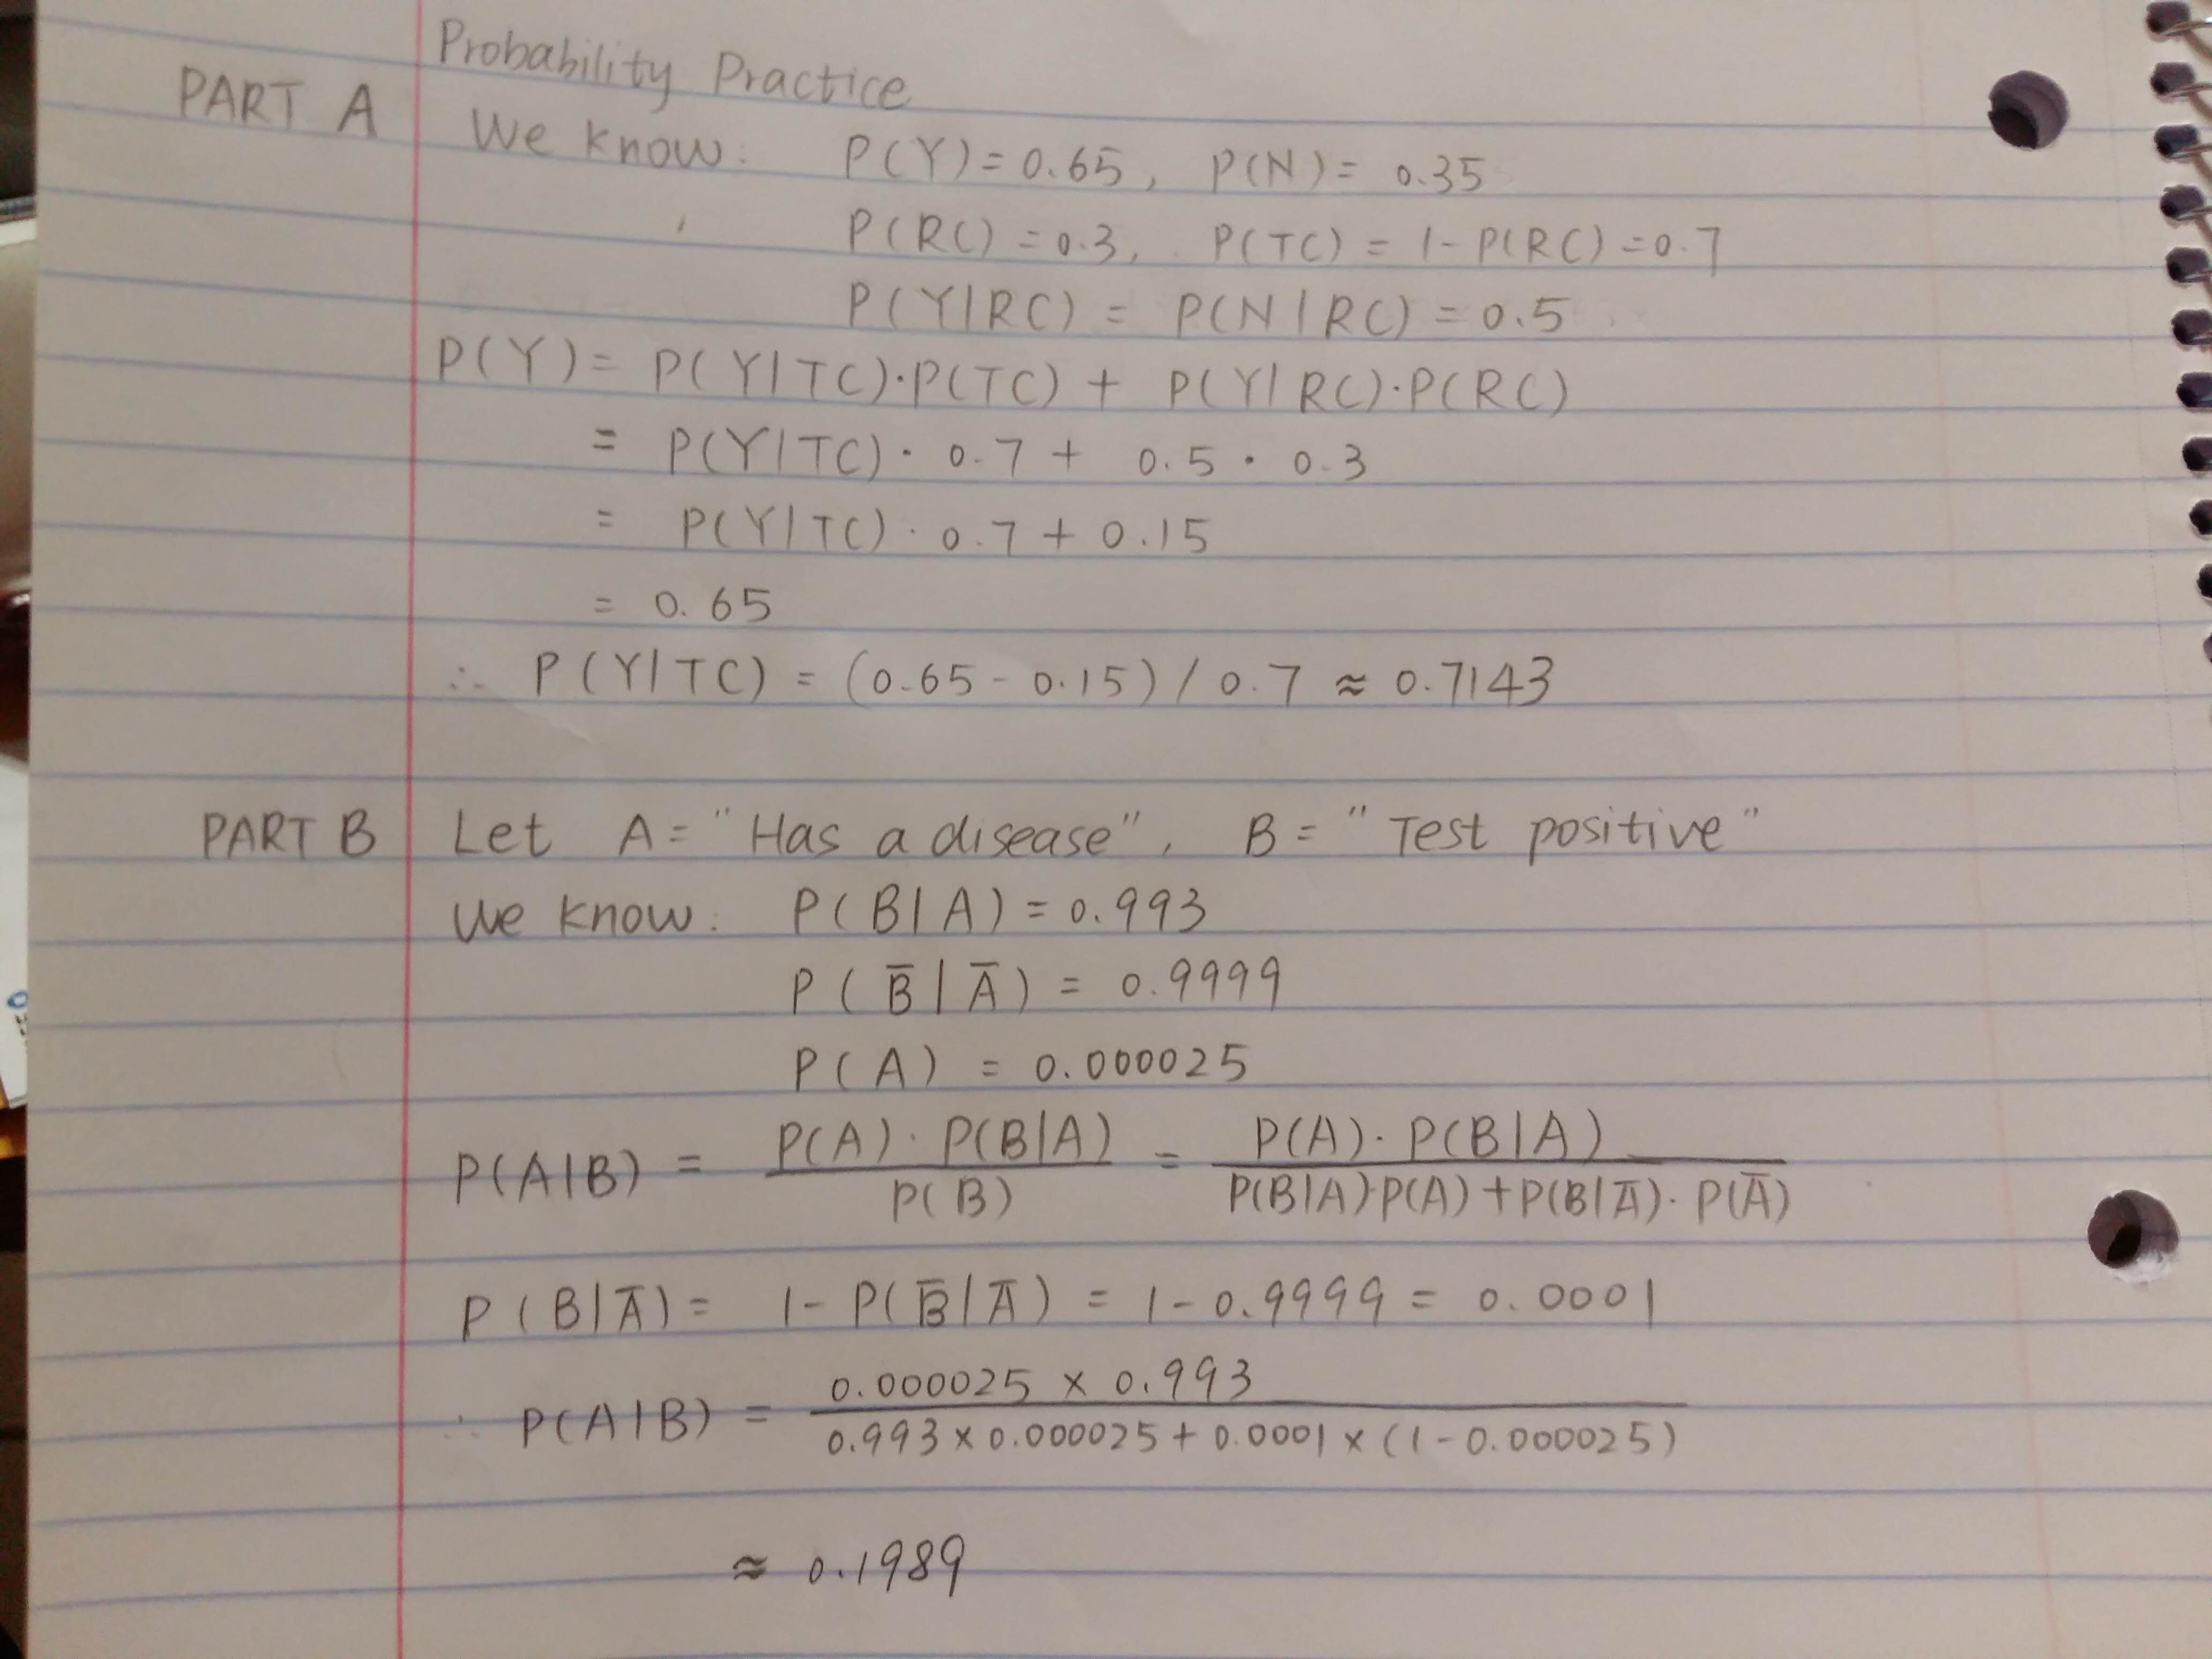 Probability Practice
PART A We know: P(Y)=0.65, P(N)= 0.35
P(RC)=0.3, P(TC) = 1-P(RC)=0.7
P(Y|RC) = P(N|RC) = 0.5
P(Y)= P(Y|TC)·P(TC) + P(Y|RC)·P(RC)
= P(Y|TC)· 0.7 + 0.5 · 0.3
= P(Y|TC)· 0.7 + 0.15
= 0.65
∴ P(Y|TC) = (0.65-0.15)/0.7 ≈ 0.7143
PART B Let A= "Has a disease", B= "Test positive"
We know: P(B|A)=0.993
P(B̅|A̅) = 0.9999
P(A) = 0.000025
P(A|B) = P(A)·P(B|A) / P(B) = P(A)·P(B|A) / P(B|A)·P(A)+P(B|A̅)·P(A̅)
P(B|A̅)= 1-P(B̅|A̅) = 1-0.9999 = 0.0001
∴ P(A|B) = 0.000025 × 0.993 / 0.993×0.000025+0.0001×(1-0.000025)
≈ 0.1989